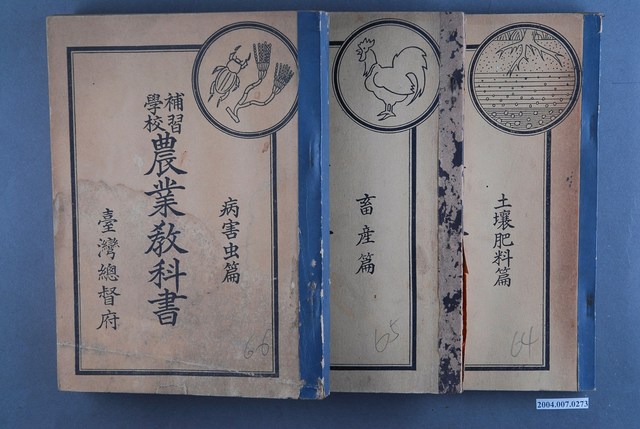 補習
學校
農業教科書
病害虫篇
臺灣總督府
66
畜産篇
65
土壤肥料篇
64
2004.007.0273